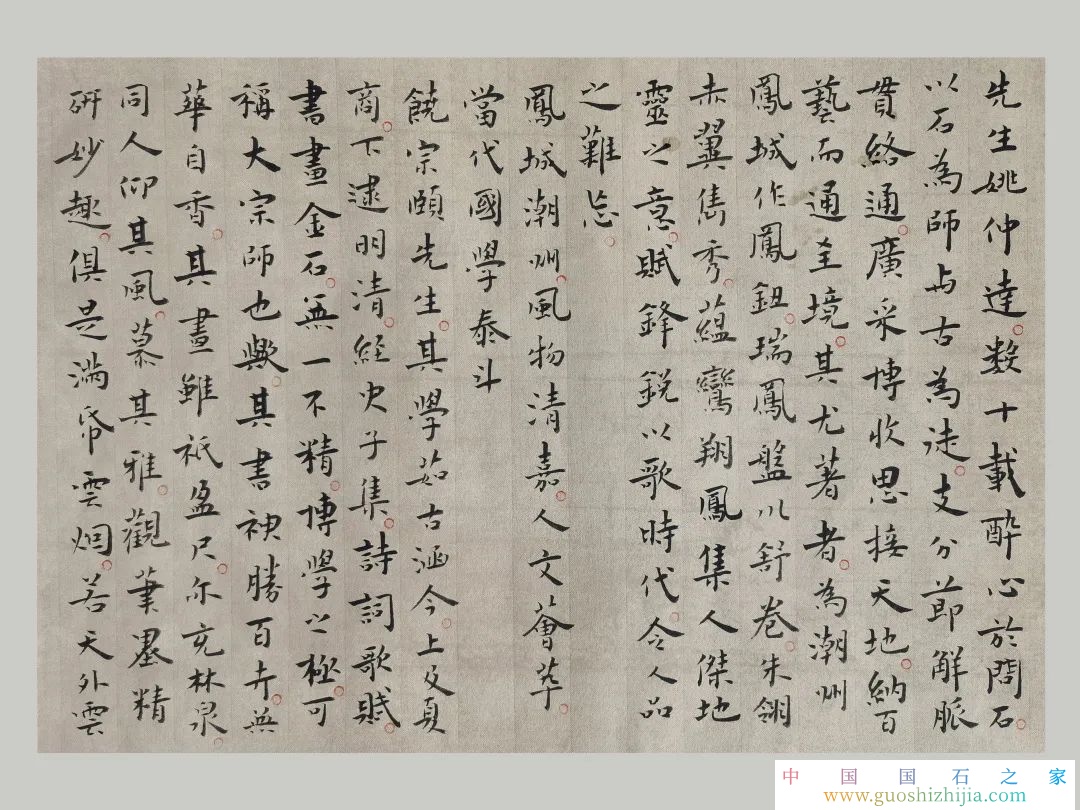 先生姚仲達數十載酔心於問石
以石為師与古為徒支分節解脈
貫絡通廣采博收思接天地納百
藝而通至境其尤著者為潮州
鳳城作鳳鈕瑞鳳盤以舒卷朱翎
赤翼雋秀蘊鸞翔鳳集人傑地
靈之意賦鋒鋭以歌時代令人品
之難忘
鳳城潮州風物清嘉人文薈萃
當代國學泰斗
饒宗頤先生其學茹古涵今上及夏
商下逮明清經史子集詩詞歌賦
書畫金石無一不精博學之極可
稱大宗師也歟其書神勝百卉無
華自香其畫雖祇盈尺尓充林泉
同人仰其風慕其雅觀筆墨精
研妙趣俱是滿帋雲烟若天外雲
中国国石之家
www.guoshizhijia.com